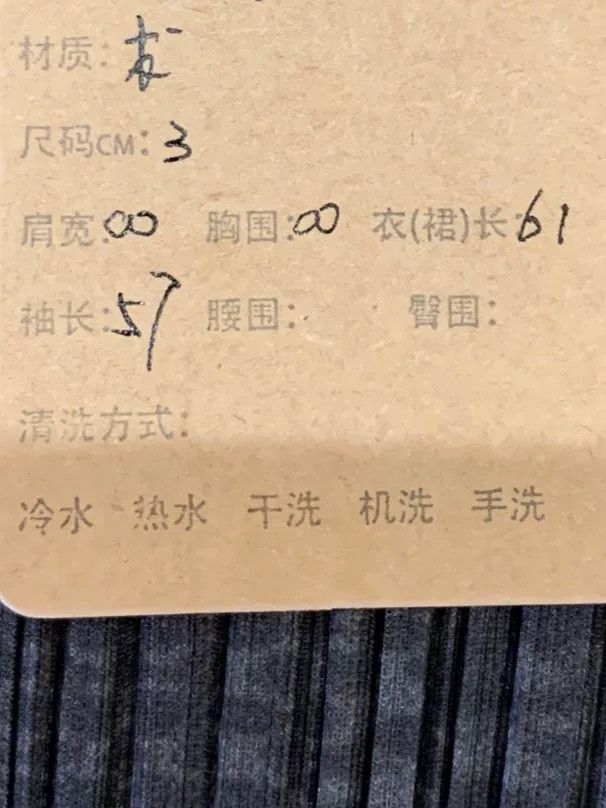 材质:
尺码CM: 3
肩宽: ∞ 胸围: ∞ 衣(裙)长: 61
袖长: 57 腰围: 臀围:
清洗方式:
冷水 热水 干洗 机洗 手洗